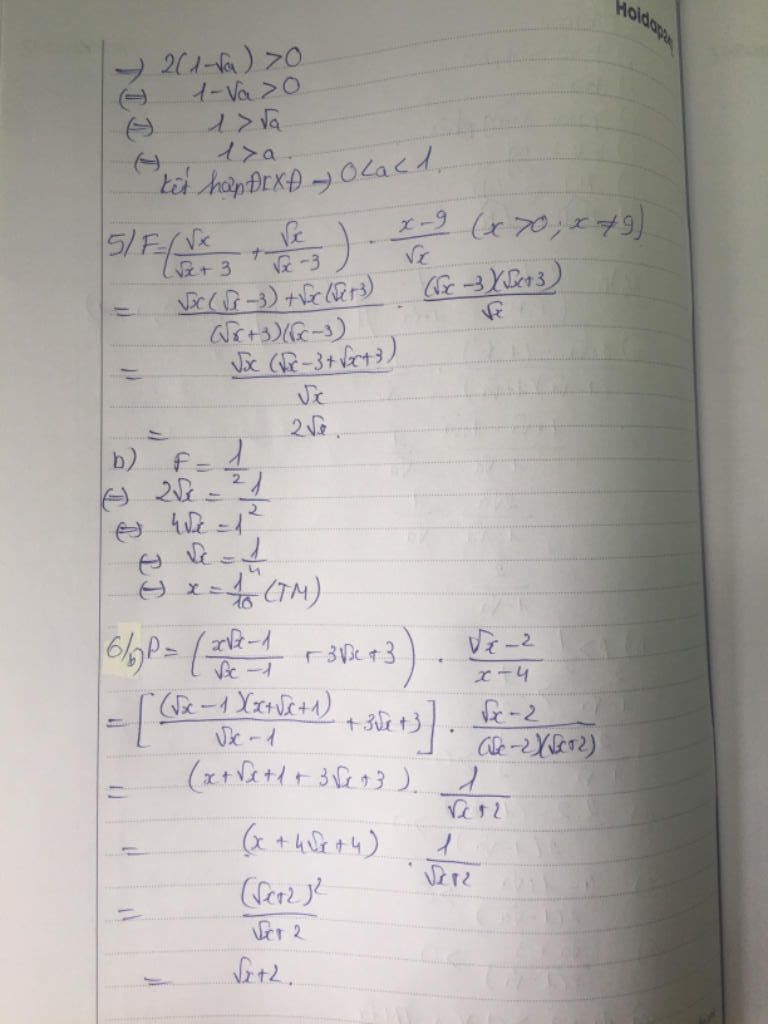 Hoidap247
→ 2(1-√a) > 0
(=) 1-√a > 0
(=) 1 > √a
(=) 1 > a.
Kết hợp ĐKXĐ → 0 < a < 1.
5/ F = (√x/(√x+3) + √x/(√x-3)) · (x-9)/√x (x > 0; x ≠ 9)
= (√x(√x-3)+√x(√x+3))/((√x+3)(√x-3)) · ((√x-3)(√x+3))/√x
= (√x(√x-3+√x+3))/√x
= 2√x.
b) F = 1/2
(=) 2√x = 1/2
(=) 4√x = 1
(=) √x = 1/4
(=) x = 1/16 (TM)
6/b) P = ((x√x-1)/(√x-1) + 3√x+3) · (√x-2)/(x-4)
= [((√x-1)(x+√x+1))/(√x-1) + 3√x+3] · (√x-2)/((√x-2)(√x+2))
= (x+√x+1+3√x+3) · 1/(√x+2)
= (x+4√x+4) · 1/(√x+2)
= (√x+2)²/(√x+2)
= √x+2.